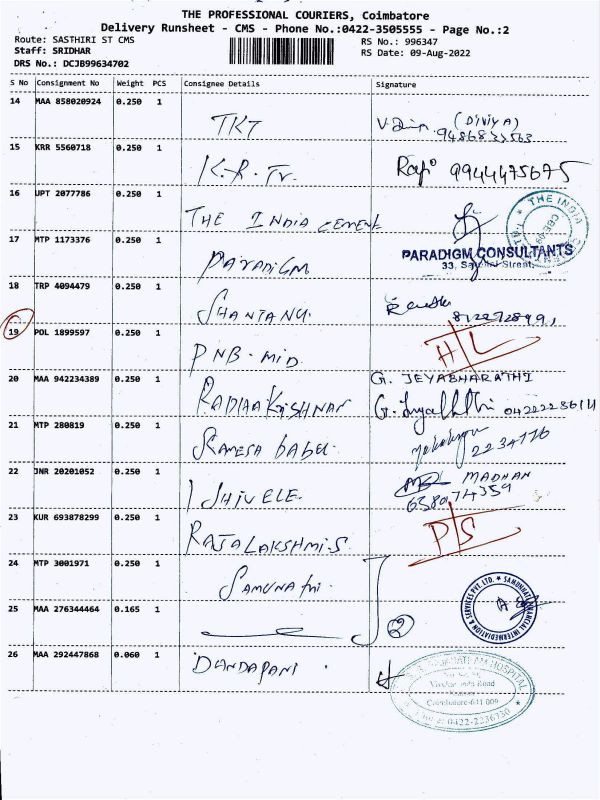 THE PROFESSIONAL COURIERS, Coimbatore
Delivery Runsheet - CMS - Phone No.:0422-3505555 - Page No.:2
Route: SASTHIRI ST CMS
RS No.: 996347
Staff: SRIDHAR
RS Date: 09-Aug-2022
DRS No.: DCJB99634702
S No Consignment No Weight PCS Consignee Details Signature
14 MAA 858020924 0.250 1
TKT (DIVIYA)
15 KRR 5560718 0.250 1
K.R. Tr. 9944475675
16 UPT 2077786 0.250 1
THE INDIA CEMENT
THE INDIA
17 MTP 1173376 0.250 1
PARADIGM
PARADIGM CONSULTANTS
33, Street,
18 TRP 4094479 0.250 1
SHANTANU.
19 POL 1899597 0.250 1
PNB-MID H/L
20 MAA 942234389 0.250 1
RADHAKRISHNAN G. JEYABHARATHI
21 MTP 280819 0.250 1
RAMESA BABU. 2234776
22 JNR 20201052 0.250 1
MADHAN
23 KUR 693878299 0.250 1
RAJALAKSHMI.S P/S
24 MTP 3001971 0.250 1
25 MAA 276344464 0.165 1
2
26 MAA 292447868 0.060 1
DANDAPANI
HOSPITAL
Road
Coimbatore-641 009
0422-2236730